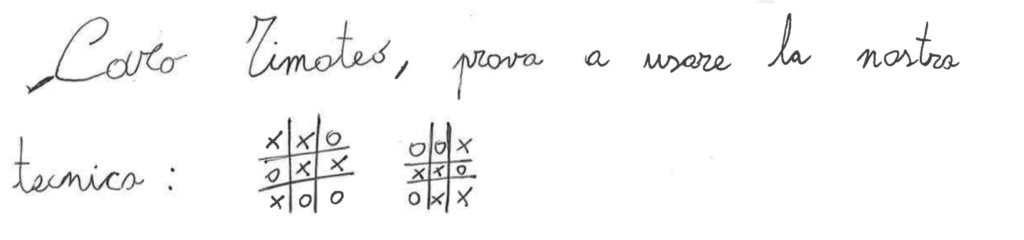 Caro Timoteo, prova a usare la nostra
tecnica:
X X O O O X
O X X X X O
X O O O X X